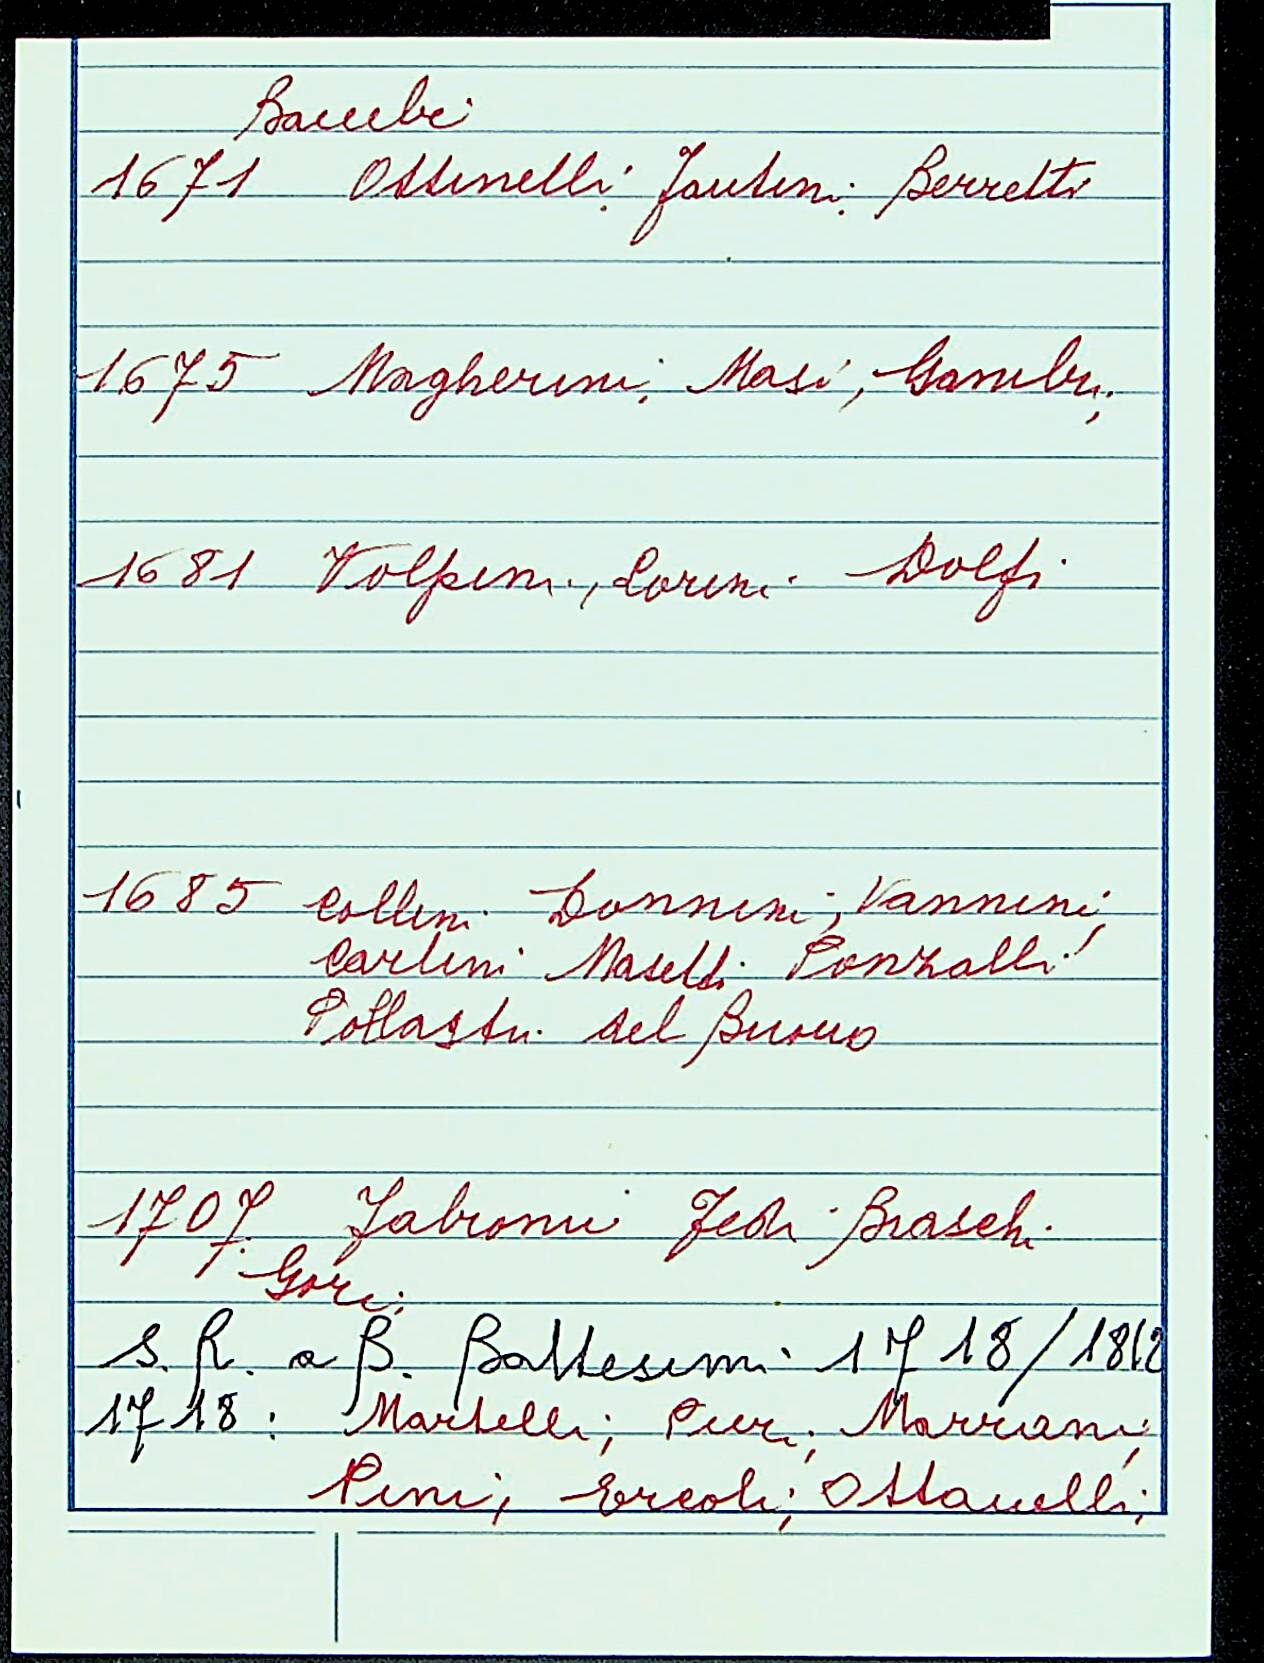 Bambi
1671 Ottinelli; Fantini; Berretti
1675 Magherini; Masi, Gambi;
1681 Volpini, Lorini Dolfi
1685 Collini Donnini; Vannini,
Carlini Maselli Ponzalli
Pollastri del Buono
1707. Fabroni Fedi Braschi
Gori;
S. R. a B. Battesimi 1718/1812
1718: Martelli; Pieri; Marriani;
Pini; Ercoli; Ottanelli;